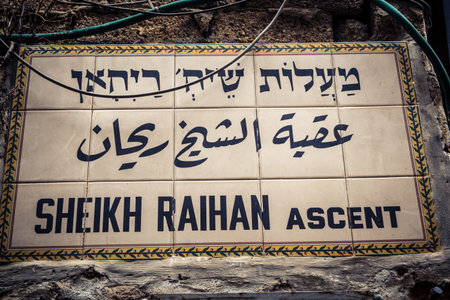 מַעֲלוֹת שֵׁיְח' רַיְחַאן
عقبة الشيخ ريحان
SHEIKH RAIHAN ASCENT